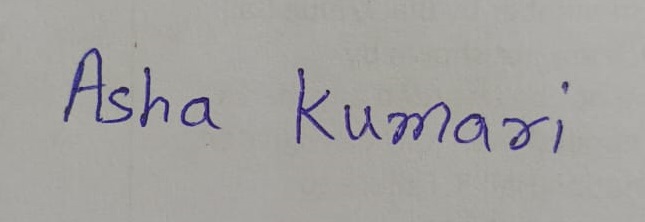 Asha Kumari